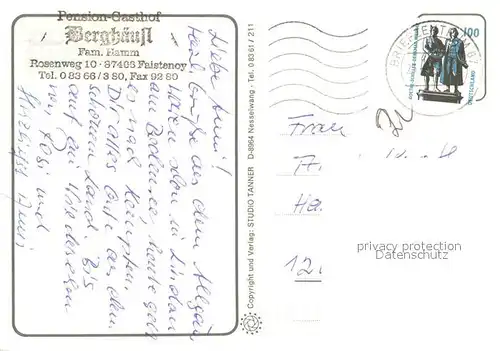 Pension-Gasthof
Berghäusl
Fam. Hamm
Rosenweg 10 · 87466 Faistenoy
Tel. 0 83 66 / 3 80, Fax 92 80
Liebe
Herzl. Grüße aus dem Allgäu.
Waren schon in Lindau
am Bodensee, heute geht
es nach Kempten.
Dir alles Gute aus dem
schönen Land. Bis
auf ein Wiedersehen
Rosi und
Copyright und Verlag: STUDIO TANNER D-8964 Nesselwang · Tel. 0 83 61 / 211
100
DEUTSCHLAND
BRIEFZENTRUM
Frau
A.
Ha
12.
privacy protection
Datenschutz